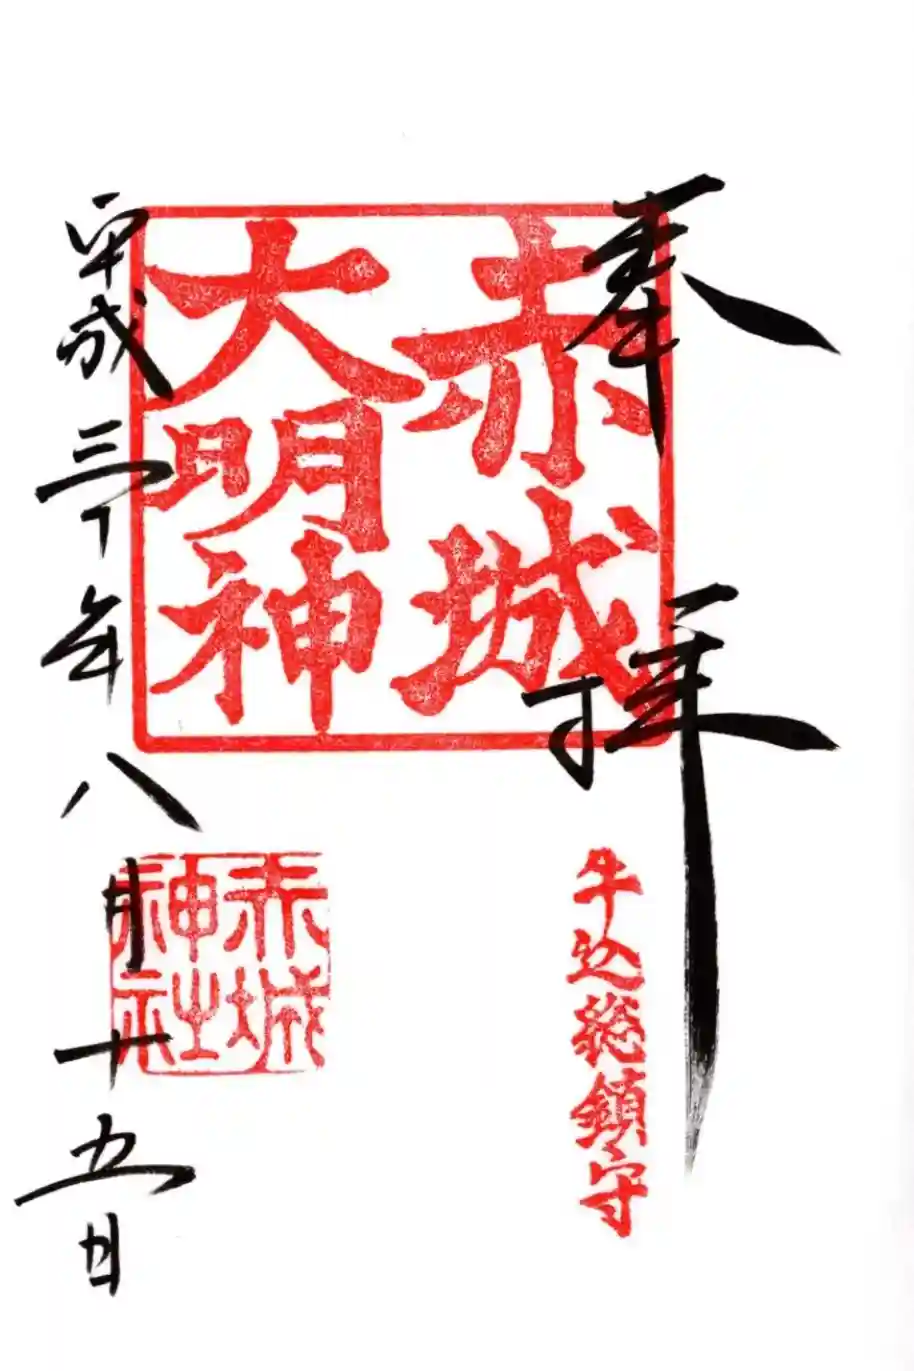 奉拝
牛込総鎮守
赤城
大明神
赤城
神社
平成三十年八月十五日